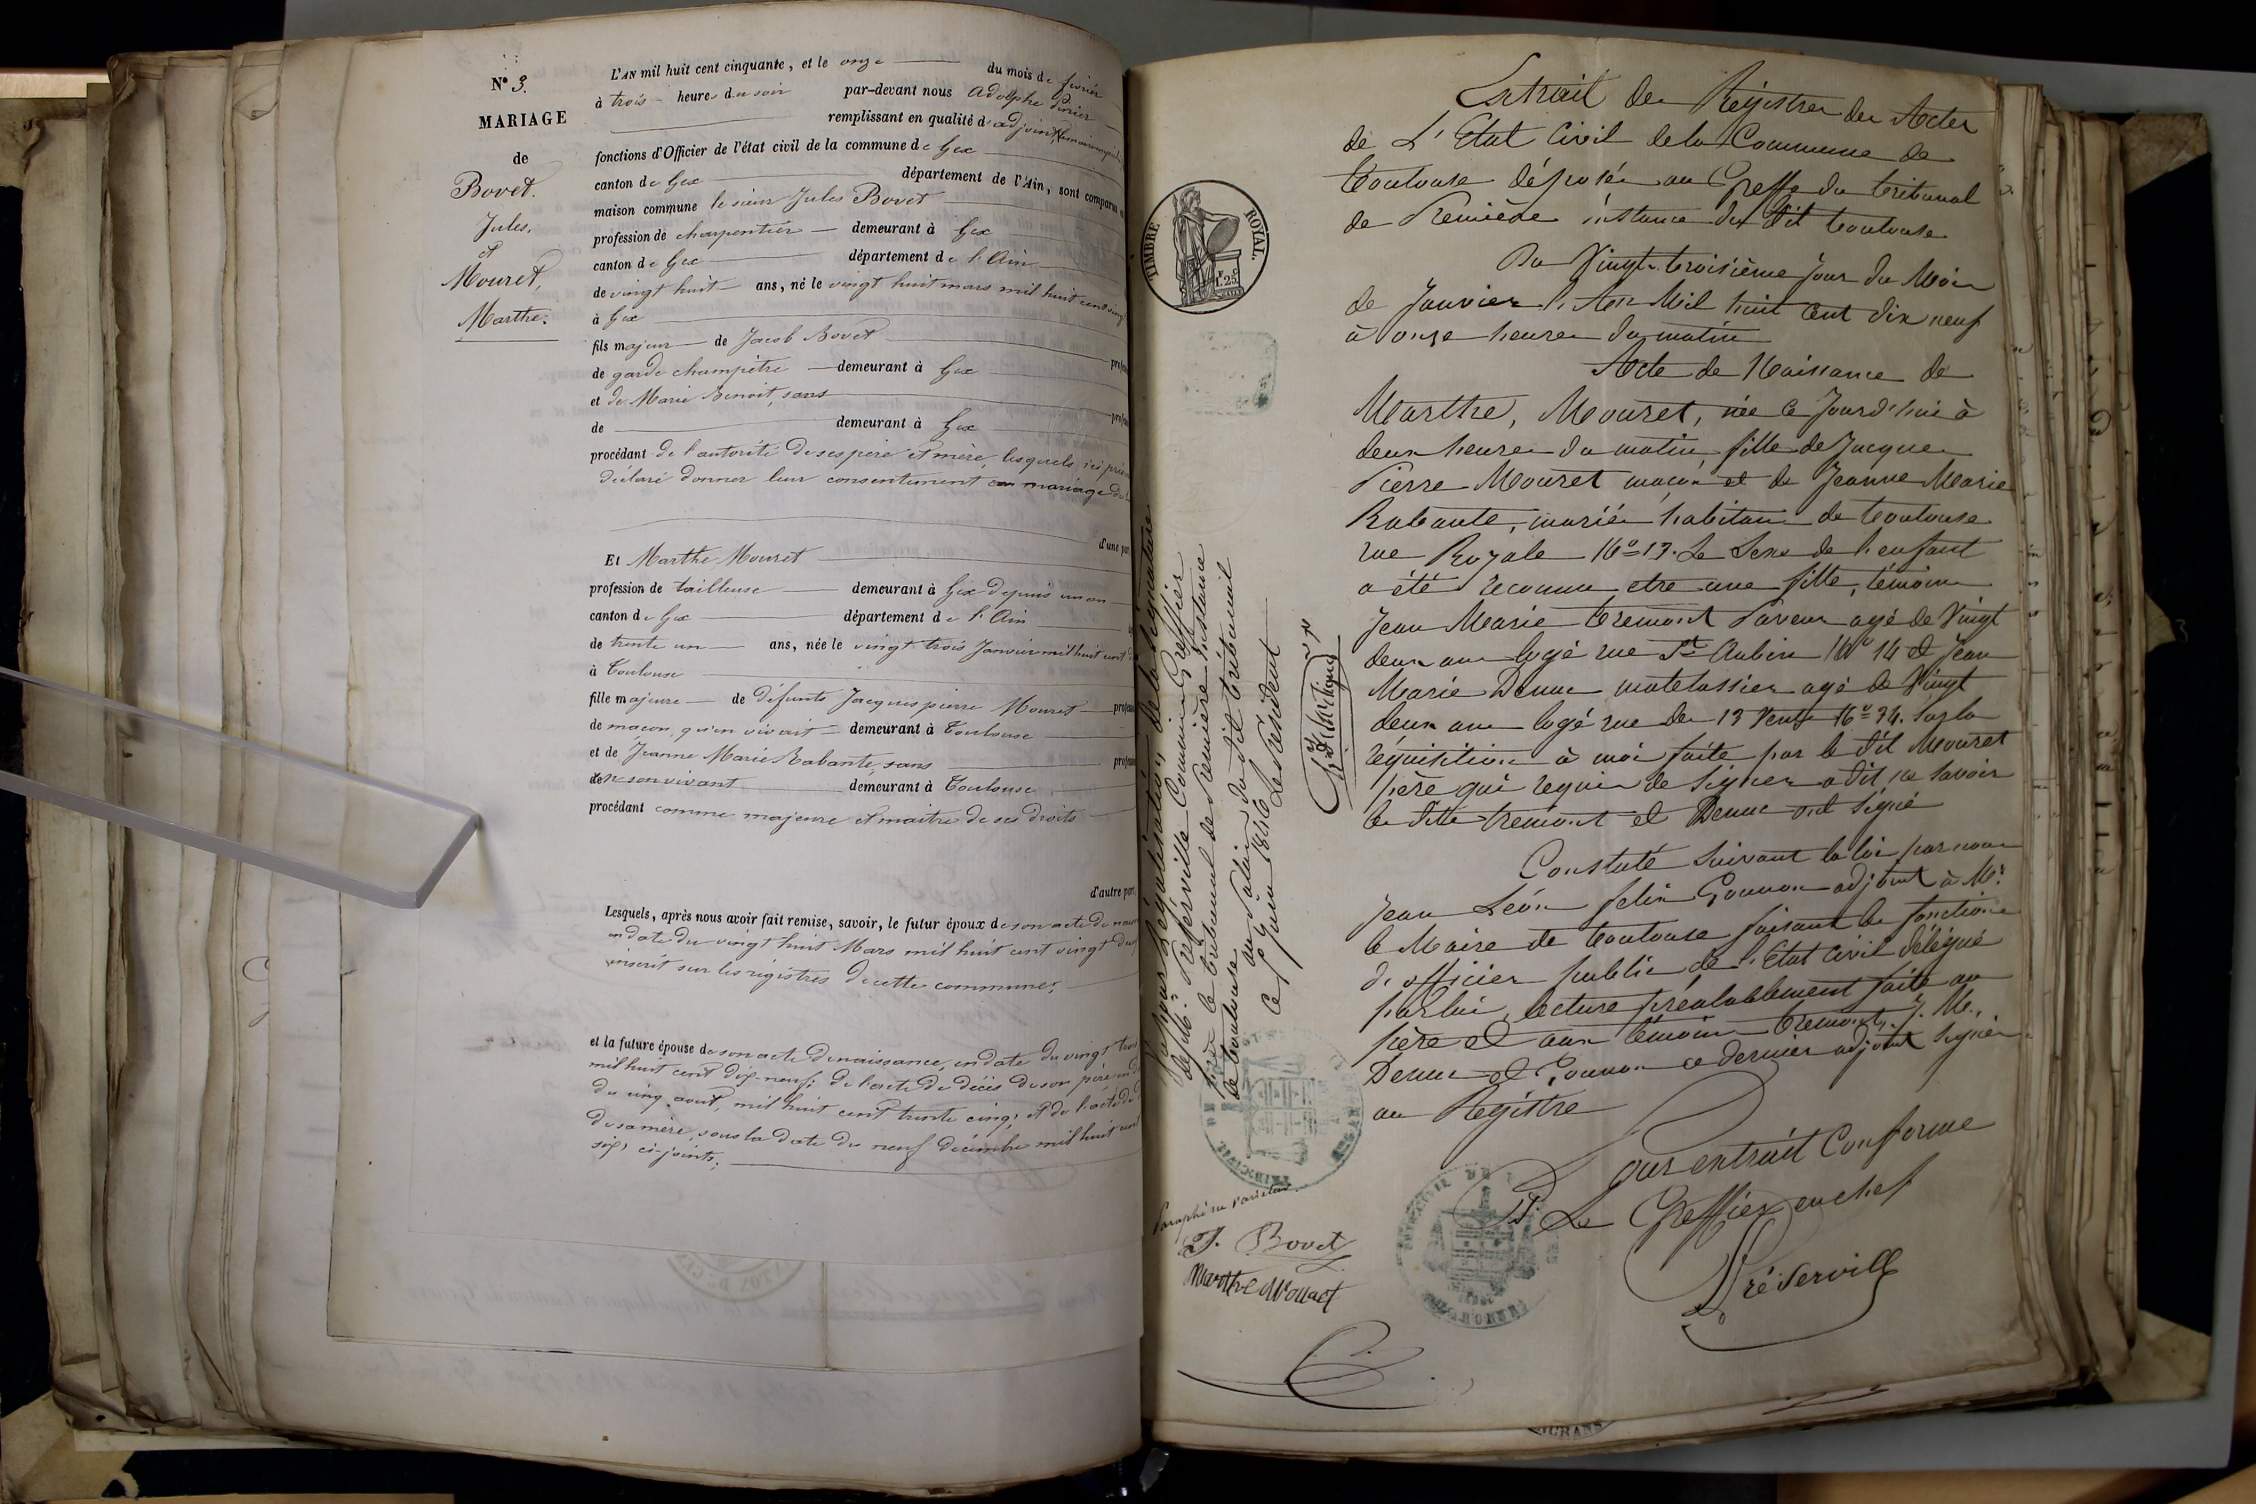 N° 3.
MARIAGE
de
Bovet.
Jules,
et
Mouret,
Marthe.
L'AN mil huit cent cinquante, et le onze du mois de février
à trois heures du soir par-devant nous Adolphe
remplissant en qualité d'adjoint,
fonctions d'Officier de l'état civil de la commune de Gex
canton de Gex département de l'Ain, sont comparus
maison commune le sieur Jules Bovet
profession de charpentier demeurant à Gex
canton de Gex département de l'Ain
de vingt huit ans, né le vingt huit mars mil huit cent vingt
à Gex
fils majeur de Jacob Bovet
de garde champêtre demeurant à Gex
et de Marie Benoit, sans
de demeurant à Gex
procédant de l'autorité de ses père et mère, lesquels ici
déclaré donner leur consentement au mariage
d'une part
Et Marthe Mouret
profession de tailleuse demeurant à Gex depuis un an
canton de Gex département de l'Ain
de trente un ans, née le vingt trois Janvier mil huit cent
à Toulouse
fille majeure de défunts Jacques pierre Mouret
de maçon, qu'en vivait demeurant à Toulouse
et de Jeanne Marie Rabante, sans
en son vivant demeurant à Toulouse
procédant comme majeure et maitre de ses droits
d'autre part.
Lesquels, après nous avoir fait remise, savoir, le futur époux de son acte de
en date du vingt huit Mars mil huit cent vingt
inscrit sur les registres de cette commune;
et la future épouse de son acte de naissance, en date du vingt trois
mil huit cent dix-neuf; de l'acte de décès de son père en
du cinq aout, mil huit cent trente cinq; et de l'acte de
de sa mère, sous la date du neuf décembre mil huit cent
six, ci-joints;
TIMBRE ROYAL.
1.25.
Extrait des Régistres des Actes
de L'Etat Civil de la Commune de
Toulouse déposés au Greffe du tribunal
de Première instance du dit Toulouse
Du Vingt-troisième Jour du Mois
de Janvier l'An Mil huit Cent dix neuf
à onze heures du matin
Acte de Naissance de
Marthe, Mouret, née ce Jourd'hui à
deux heures du matin, fille de Jacques
Pierre Mouret maçon et de Jeanne Marie
Rabante, mariés habitans de Toulouse
rue Royale N° 13. Le Sexe de l'enfant
a été reconnu etre une fille, témoins
Jean Marie Tremont Paveur agé de Vingt
deux ans logé rue St Aubin N° 14 et Jean
Marie Denuc matelassier agé de Vingt
deux ans logé rue des 13 Vents N° 34. Sur la
réquisition à moi faite par le dit Mouret
père qui requis de signer a dit ne savoir
les dits Tremont et Denuc ont signé
Constaté Suivant la loi par nous
Jean Léon felix Gounon adjoint à Mr
le Maire de Toulouse faisant les fonctions
d'officier public de l'Etat Civil délégué
par lui, lecture préalablement faite au
père et aux témoins Tremont, J. M.
Denuc et Gounon ce dernier adjoint Signés
au Registre
Pour extrait Conforme
Pr. Le Greffier en chef
Préserville
Vu pour légalisation de la signature
de Mr. Préserville Commis Greffier
près le tribunal de Première instance
de Toulouse
au Palais du dit tribunal
Ce Juin 1846 Le Président
Paraphé ne varietur.
J. Bovet
Marthe Mouret